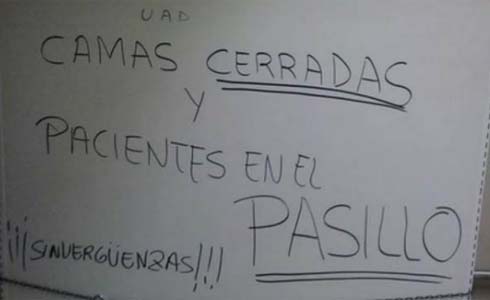 UAD
CAMAS CERRADAS
Y
PACIENTES EN EL
PASILLO
¡¡¡SINVERGÜENZAS!!!